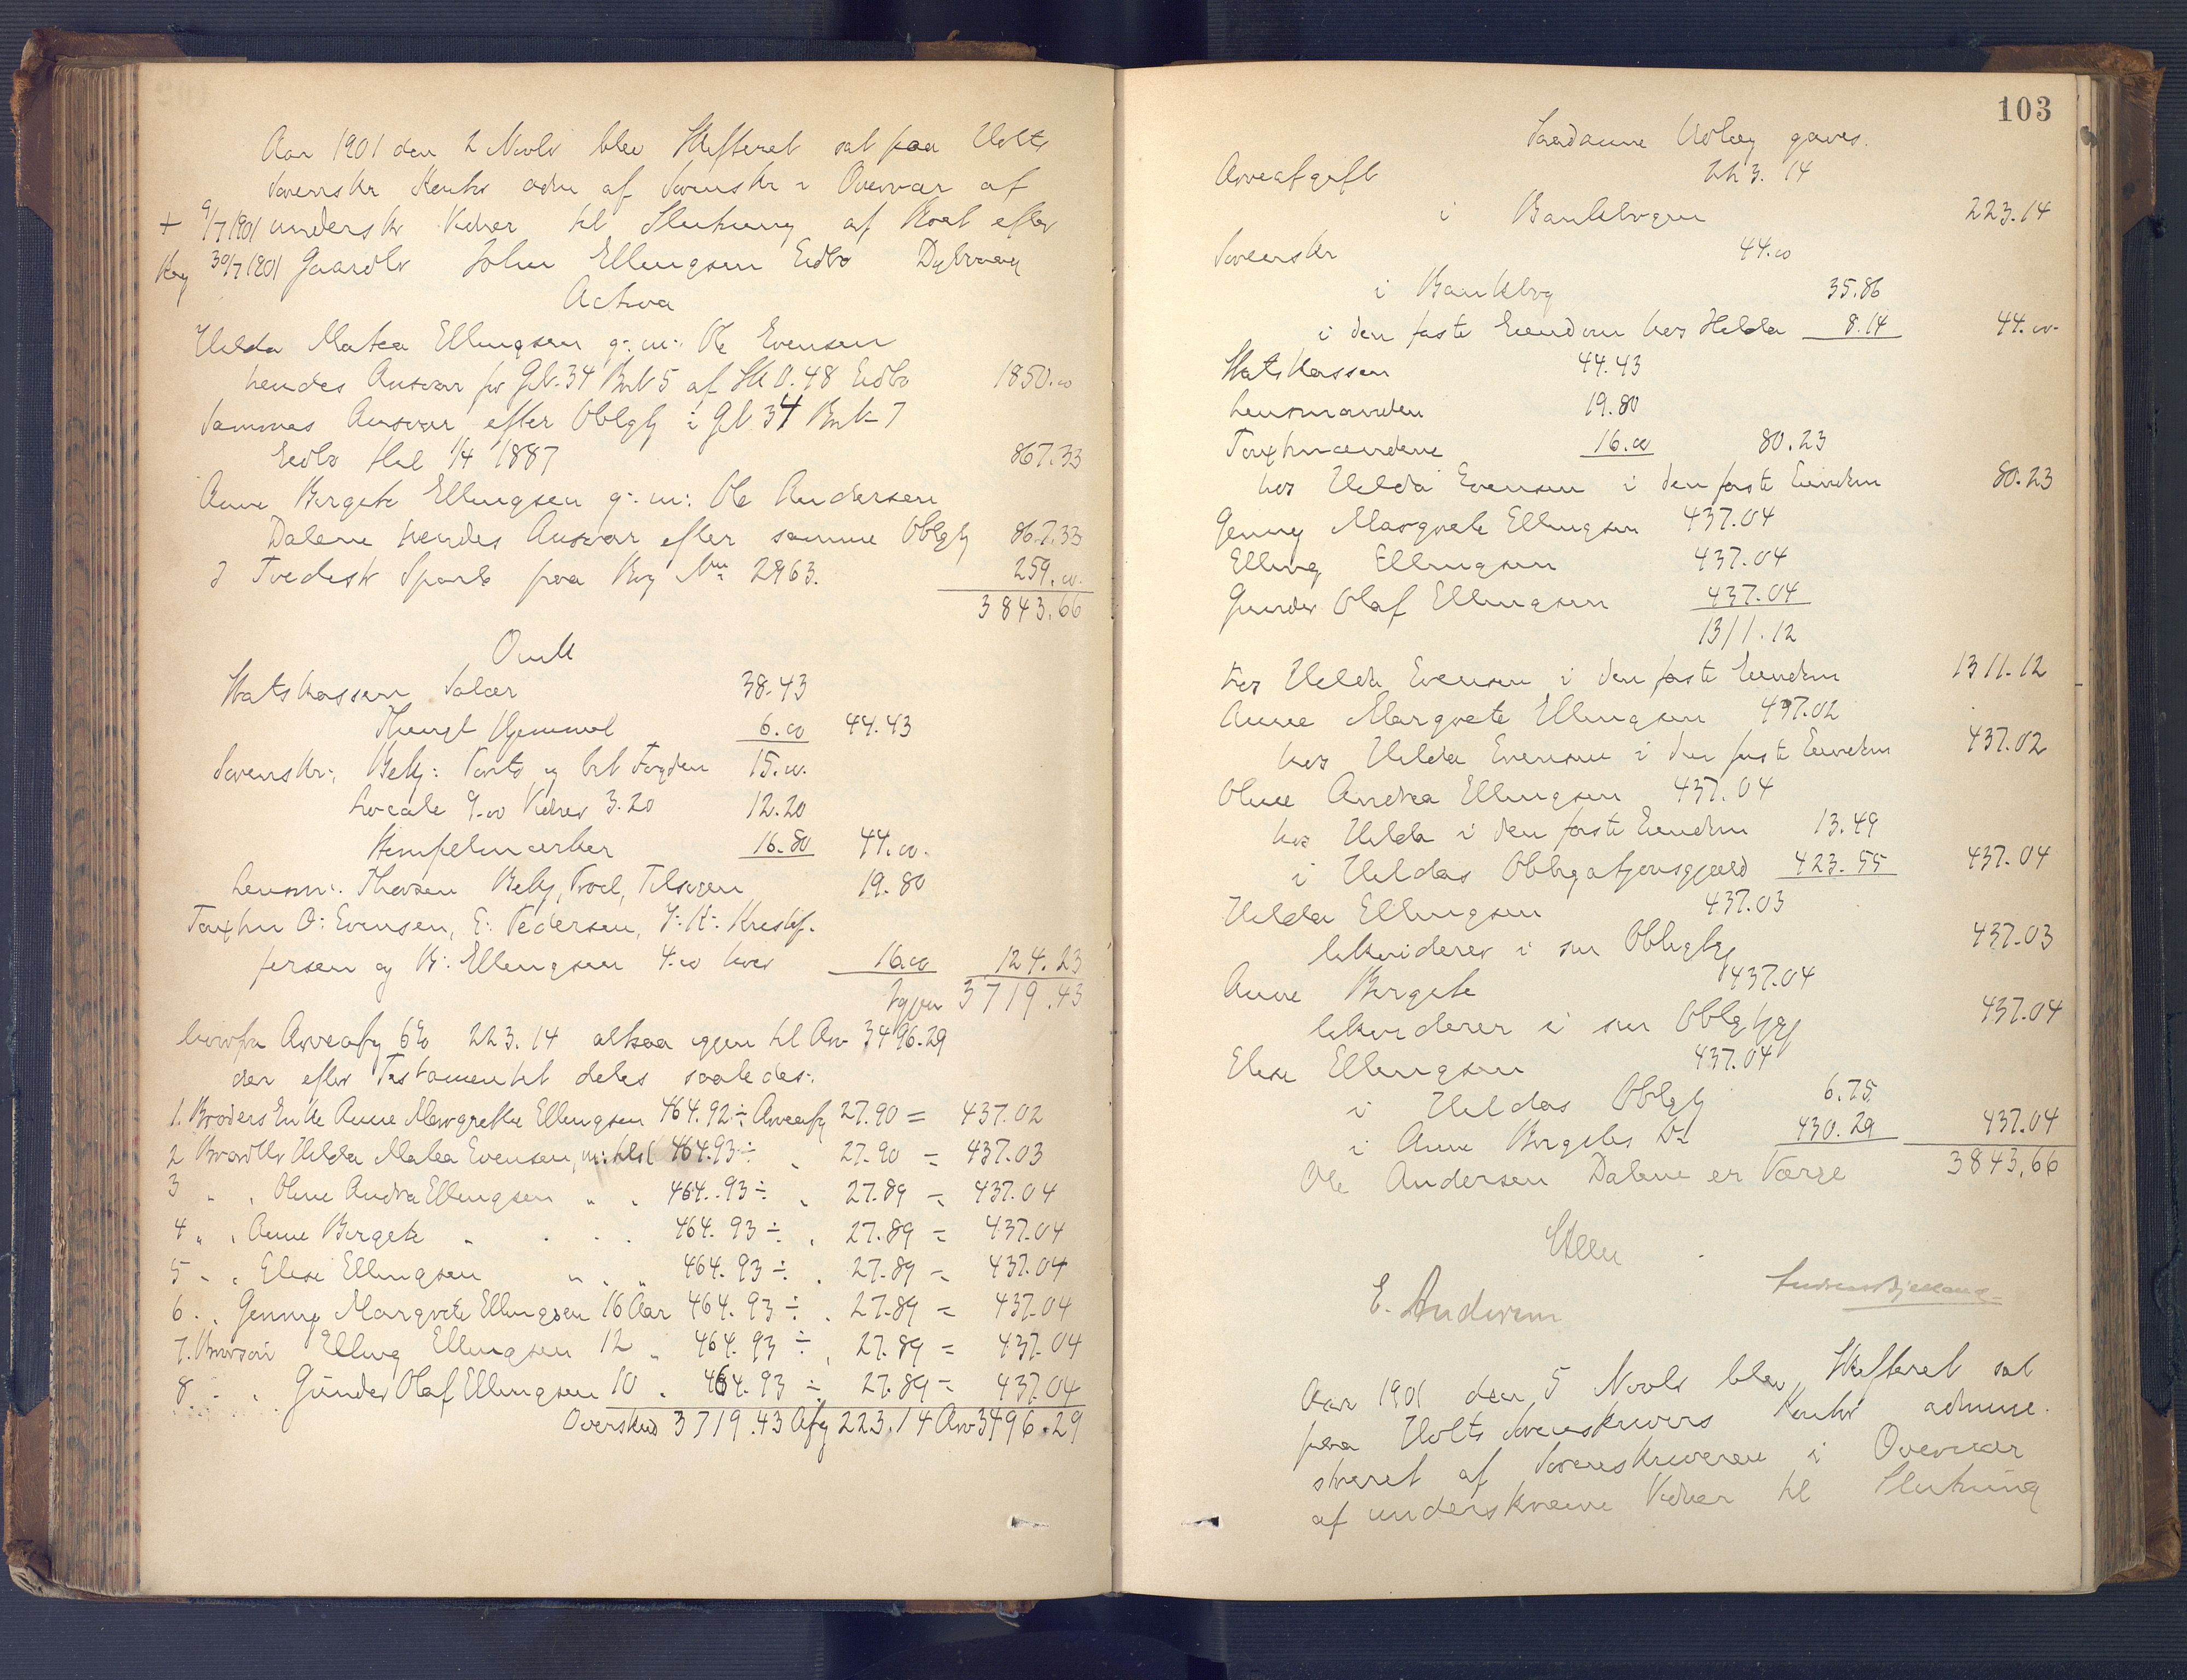 Aar 1901 den 2 Novbr blev Skifteret sat paa Holts
Sorenskr Kontor adm af Sorenskr i Overvær af
+ 9/7 1901 underskr Vidner til Slutning af Boet efter
Reg 30/7 1901 Gaardbr John Ellingsen Eidbo Dybvaag
Activa
Helda Matea Ellingsen g: m: Ole Evensen
hendes Ansvar for Gb. 34 Bnb 5 af Sk 0.48 Eidbo 1850.00
Sammes Ansvar efter Oblgtj i Gb 34 Bnb 7
Eidbo 1/4 1887 867.33
Anne Birgete Ellingsen g: m: Ole Andersen
Dalene hendes Ansvar efter samme Oblgtj 867.33
I Tvedestr Sparb paa Bog No 2963. 259.00
3843.66
Omk
Statskassen Salær 38.43
Thingl Hjemmel 6.00 44.43
Sorenskr: Bekj: Porto og til Fogden 15.00
Locale 9.00 Vidner 3.20 12.20
Stempelmærker 16.80 44.00.
Lensm: Thorsen Bekj, Procl, Tilsigen 19.80
Taxtm O: Evensen, E: Pedersen, J: K: Kristof-
fersen og B: Ellingsen 4.00 hver 16.00 124.23
Igjen 3719.43
hvorfra Arveafg 6% 223.14 altsaa igjen til Arv 3496.29
der efter Testamentet deles saaledes:
1. Broders Enke Anne Margrethe Ellingsen 464.92 ÷ Arveafg 27.90 = 437.02
2 Brordtr Helda Matea Evensen, 464.93 ÷ " 27.90 = 437.03
3 " " Oline Andrea Ellingsen " " 464.93 ÷ " 27.89 = 437.04
4 " " Anne Birgete " " " 464.93 ÷ " 27.89 = 437.04
5 " " Elise Ellingsen " " " 464.93 ÷ " 27.89 = 437.04
6 " " Genny Margrete Ellingsen 16 Aar 464.93 ÷ " 27.89 = 437.04
7. Brorsøn Elling Ellingsen 12 " 464.93 ÷ " 27.89 = 437.04
8 " " Gunder Olaf Ellingsen 10 " 464.93 ÷ 27.89 = 437.04
Overskud 3719.43 Afg 223.14 Arv 3496.29
103
Saadanne Udlæg gaves.
Arveafgift 223.14
i Bankbogen 223.14
Sorenskr 44.00
i Bankbog 35.86
i den faste Eiendom hos Helda 8.14 44.00
Statskassen 44.43
Lensmanden 19.80
Taxtmændene 16.00 80.23
hos Helda Evensen i den faste Eiendom 80.23
Genny Margrete Ellingsen 437.04
Elling Ellingsen 437.04
Gunder Olaf Ellingsen 437.04
1311.12
hos Helda Evensen i den faste Eiendom 1311.12
Anne Margrete Ellingsen 437.02
hos Helda Evensen i den faste Eiendom 437.02
Oline Andrea Ellingsen 437.04
hos Helda i den faste Eiendom 13.49
i Heldas Obligationsgjæld 423.55 437.04
Helda Ellingsen 437.03
likviderer i sin Obligtgj 437.03
Anne Birgete 437.04
likviderer i sin Oblgtgj 437.04
Elise Ellingsen 437.04
i Heldas Oblgtj 6.75
i Anne Birgetes Do 430.29 437.04
Ole Andersen Dalene er Værge 3843,66
E. Andersen
Aar 1901 den 5 Novbr blev Skifteret sat
paa Holts Sorenskrivers Kontor admini-
streret af Sorenskriveren i Overvær
af underskrevne Vidner til Slutning